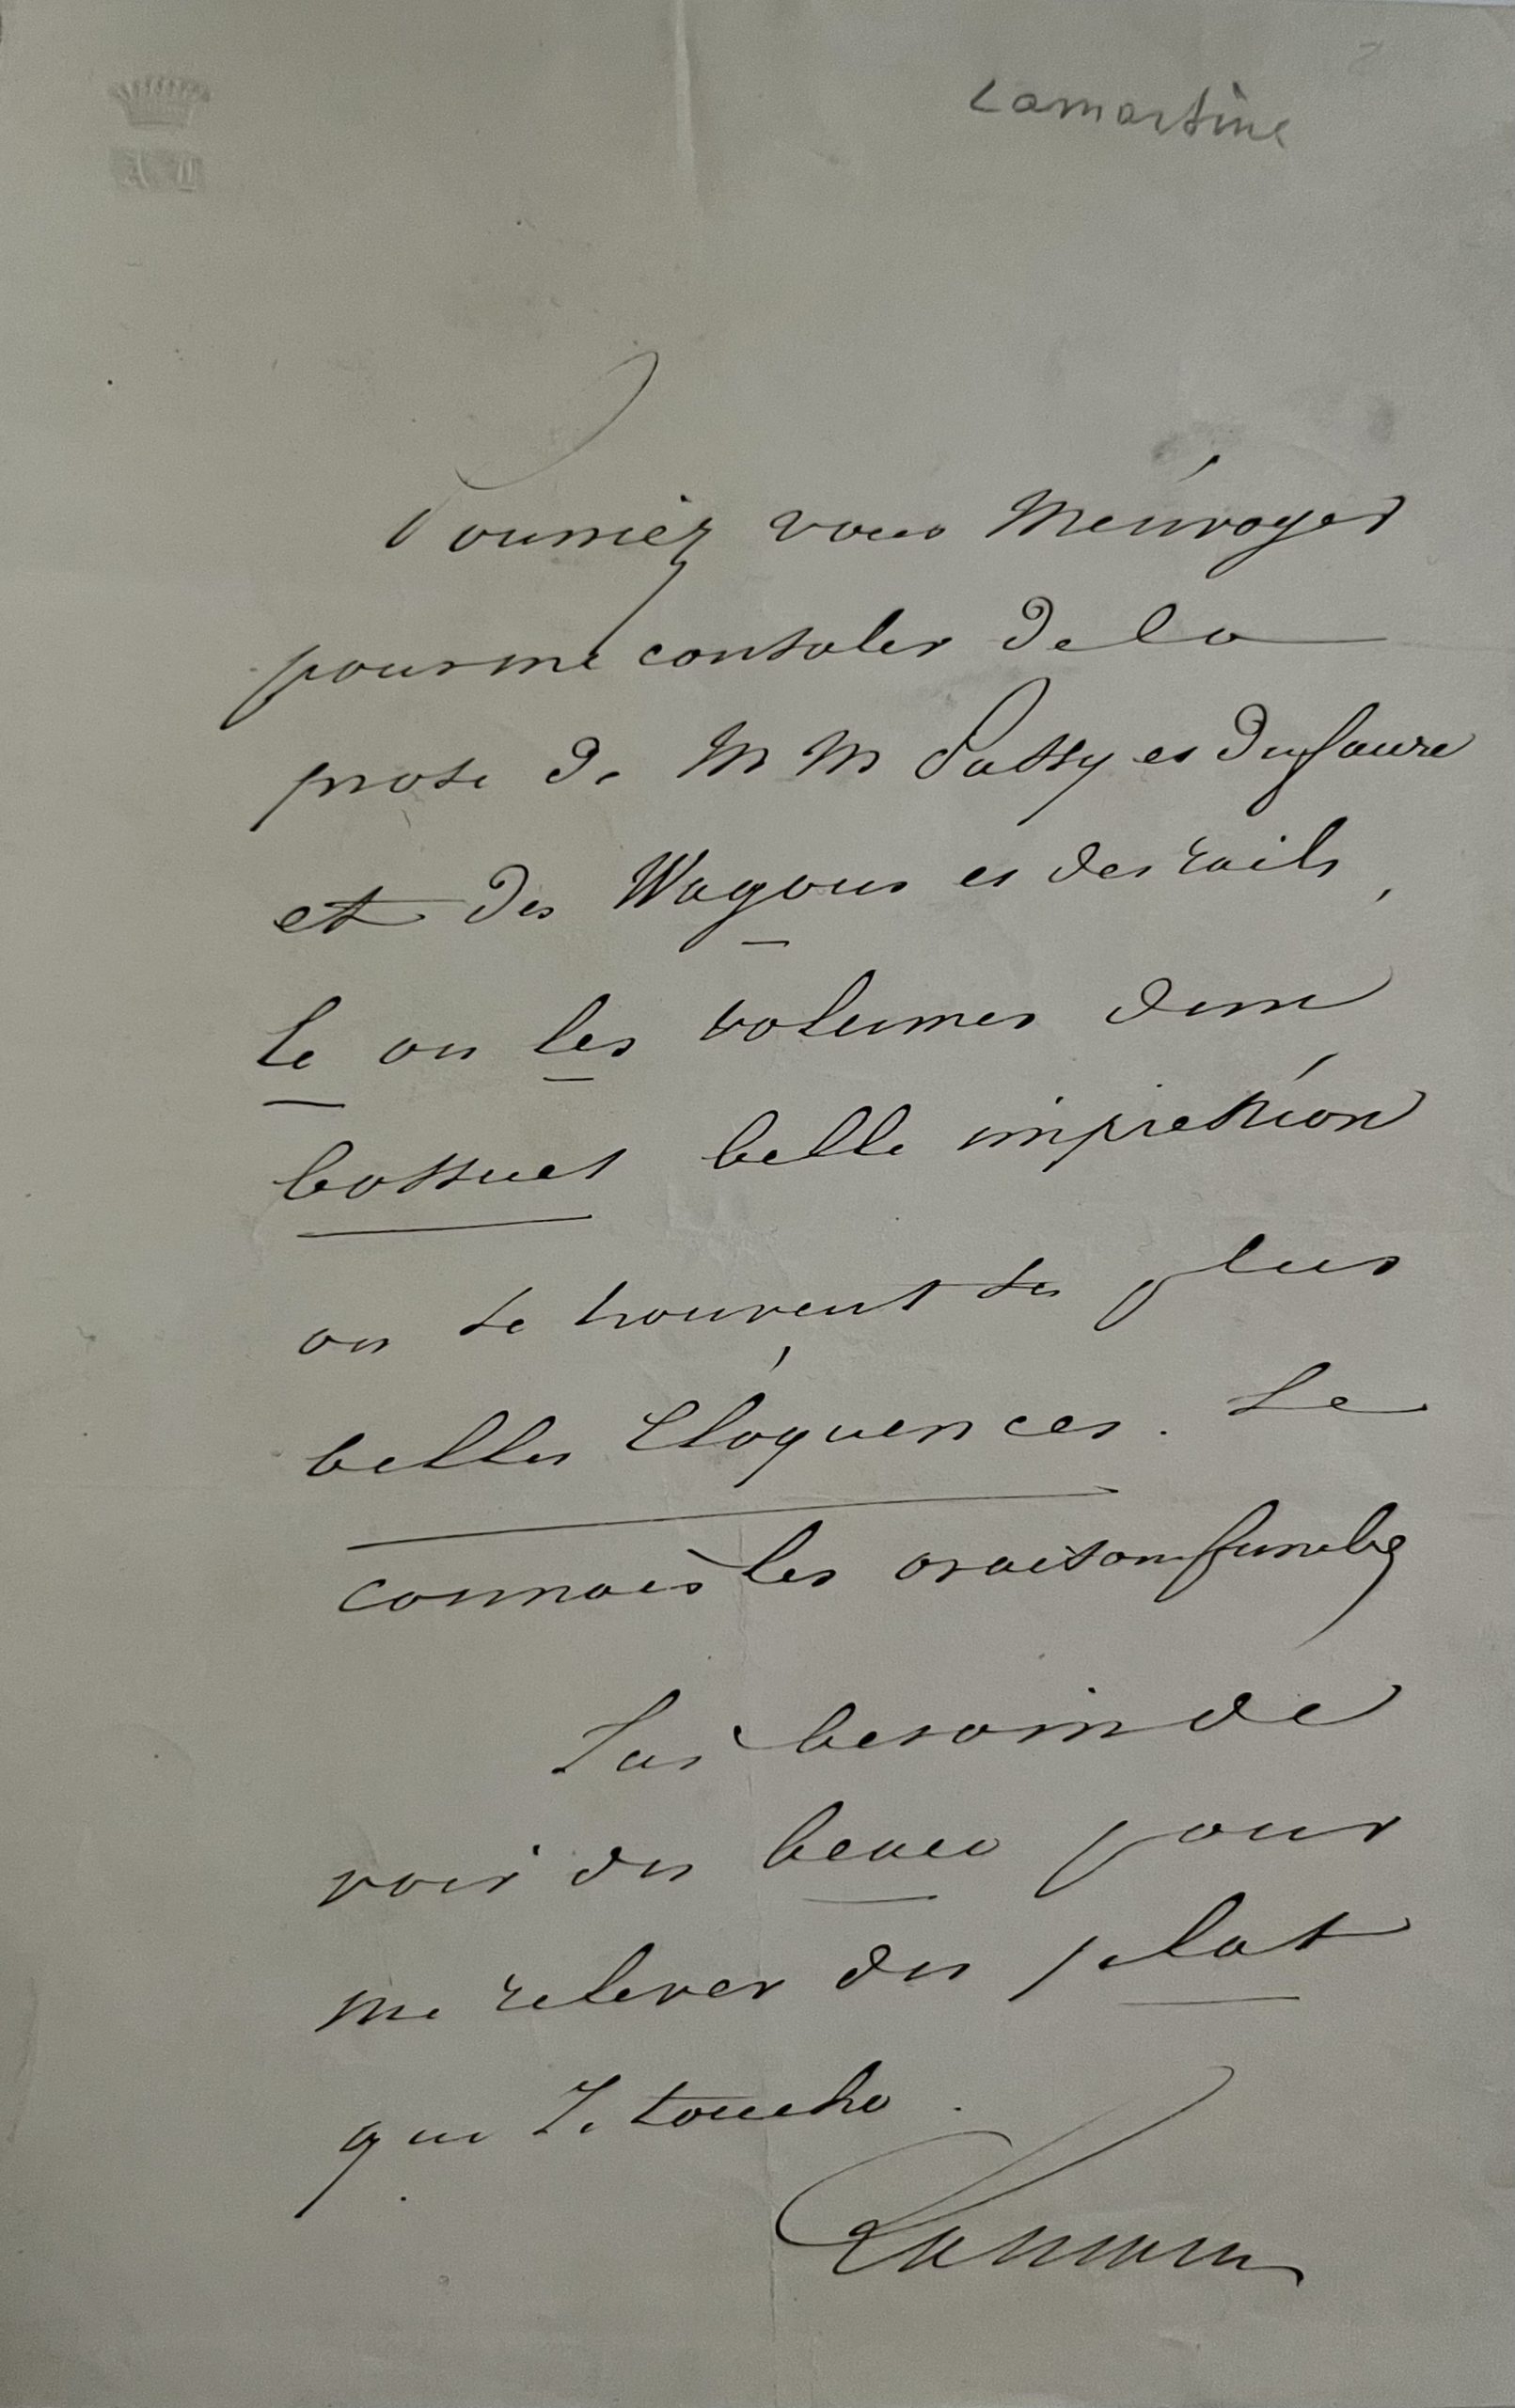 Lamartine
Pourriez vous m'envoyer
pour me consoler de la
prose de M M Passy et Dufaure
et des Wagons et des rails,
le ou les volumes dun
bossuet belle impression
ou se trouvent ses plus
belles Eloquences. Je
connais les oraisons funebres
J'ai besoin de
voir du beau pour
me relever du plat
que Je touche.
Lamartine